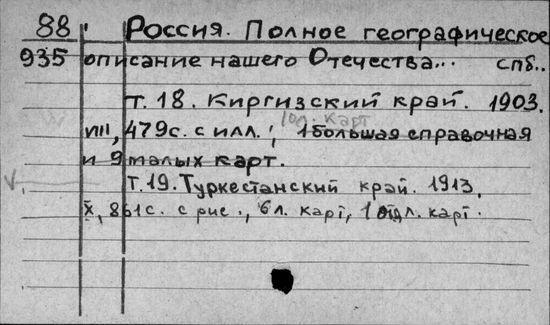 88 Россия. Полное географическое
935 описание нашего Отечества... спб..
т. 18. Киргизский край. 1903.
VIII, 479с. с илл.; 10л. карт 1 большая справочная
и 9 малых карт.
V. Т.19. Туркестанский край. 1913.
X, 861с. с рис., 6 л. карт, 1 отдл. карт.